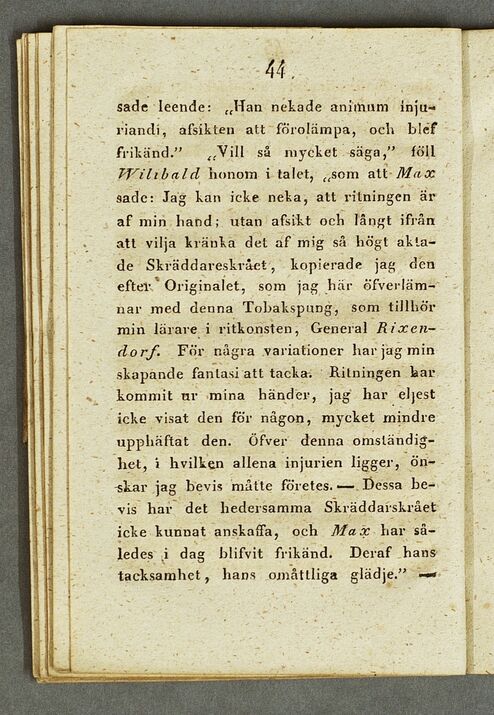 44
sade leende: „Han nekade animum inju-
riandi, afsikten att förolämpa, och blef
frikänd.” „Vill så mycket säga,” föll
Wilibald honom i talet, „som att Max
sade: Jag kan icke neka, att ritningen är
af min hand; utan afsikt och långt ifrån
att vilja kränka det af mig så högt akta-
de Skräddareskrået, kopierade jag den
efter Originalet, som jag här öfverläm-
nar med denna Tobakspung, som tillhör
min lärare i ritkonsten, General Rixen-
dorf. För några variationer har jag min
skapande fantasi att tacka. Ritningen har
kommit ur mina händer, jag har eljest
icke visat den för någon, mycket mindre
upphäftat den. Öfver denna omständig-
het, i hvilken allena injurien ligger, ön-
skar jag bevis måtte företes. — Dessa be-
vis har det hedersamma Skräddarskrået
icke kunnat anskaffa, och Max har så-
ledes i dag blifvit frikänd. Deraf hans
tacksamhet, hans omåttliga glädje.” —